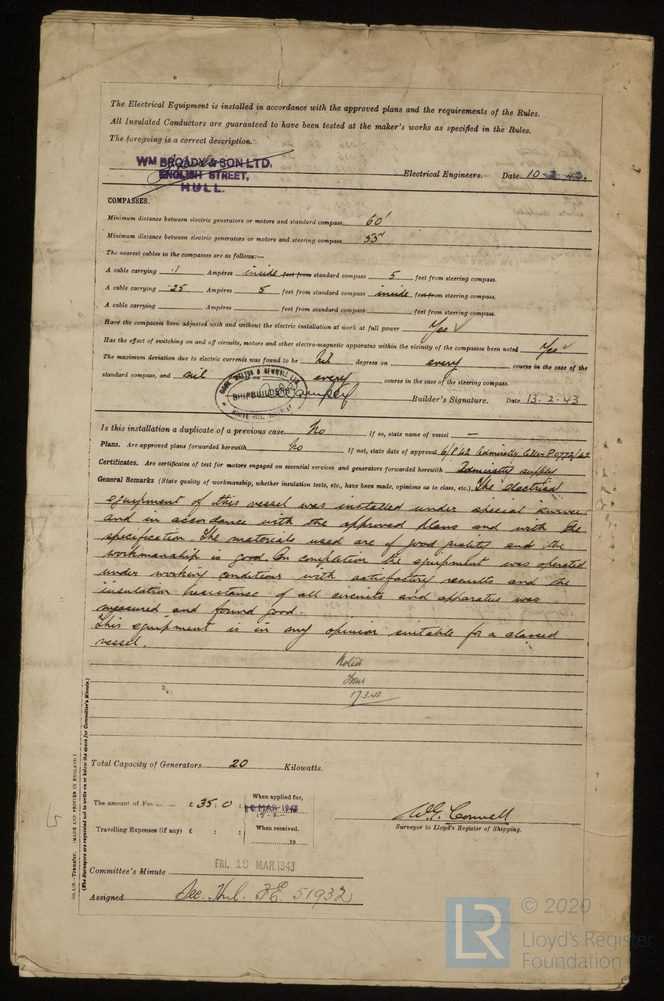 The Electrical Equipment is installed in accordance with the approved plans and the requirements of the Rules.
All Insulated Conductors are guaranteed to have been tested at the maker's works as specified in the Rules.
The foregoing is a correct description.
WM BROADY & SON LTD.
ENGLISH STREET,
HULL.
Electrical Engineers. Date 10-3-43.
COMPASSES.
Minimum distance between electric generators or motors and standard compass 60'
Minimum distance between electric generators or motors and steering compass 55'
The nearest cables to the compasses are as follows:—
A cable carrying .1 Ampères inside feet from standard compass 5 feet from steering compass.
A cable carrying .25 Ampères 5 feet from standard compass inside feet from steering compass.
A cable carrying Ampères feet from standard compass feet from steering compass.
Have the compasses been adjusted with and without the electric installation at work at full power Yes ✓
Has the effect of switching on and off circuits, motors and other electro-magnetic apparatus within the vicinity of the compasses been noted Yes ✓
The maximum deviation due to electric currents was found to be Nil degrees on every course in the case of the
standard compass, and nil on every course in the case of the steering compass.
SHIPBUILDERS
Builder's Signature. Date 13.2.43
Is this installation a duplicate of a previous case No If so, state name of vessel —
Plans. Are approved plans forwarded herewith No If not, state date of approval 6/8/42 Admiralty letter P.0773/42
Certificates. Are certificates of test for motors engaged on essential services and generators forwarded herewith Admiralty supply
General Remarks (State quality of workmanship, whether insulation tests, etc., have been made, opinions as to class, etc.) The electrical
equipment of this vessel was installed under special survey
and in accordance with the approved plans and with the
specification. The materials used are of good quality and the
workmanship is good. On completion the equipment was operated
under working conditions with satisfactory results and the
insulation resistance of all circuits and apparatus was
measured and found good.
This equipment is in my opinion suitable for a classed
vessel.
Noted
17.3.43
Total Capacity of Generators 20 Kilowatts.
The amount of Fee ... ... £ 35 : 0 :
When applied for,
10 MAR 1943
Travelling Expenses (if any) £ : :
When received,
19
W.G. Connell
Surveyor to Lloyd's Register of Shipping.
Committee's Minute FRI. 19 MAR 1943
Assigned See Hul. F.E. 51932
(MADE AND PRINTED IN ENGLAND.)
(The Surveyors are requested not to write on or below the space for Committee's Minute.)
LR
© 2020
Lloyd's Register
Foundation